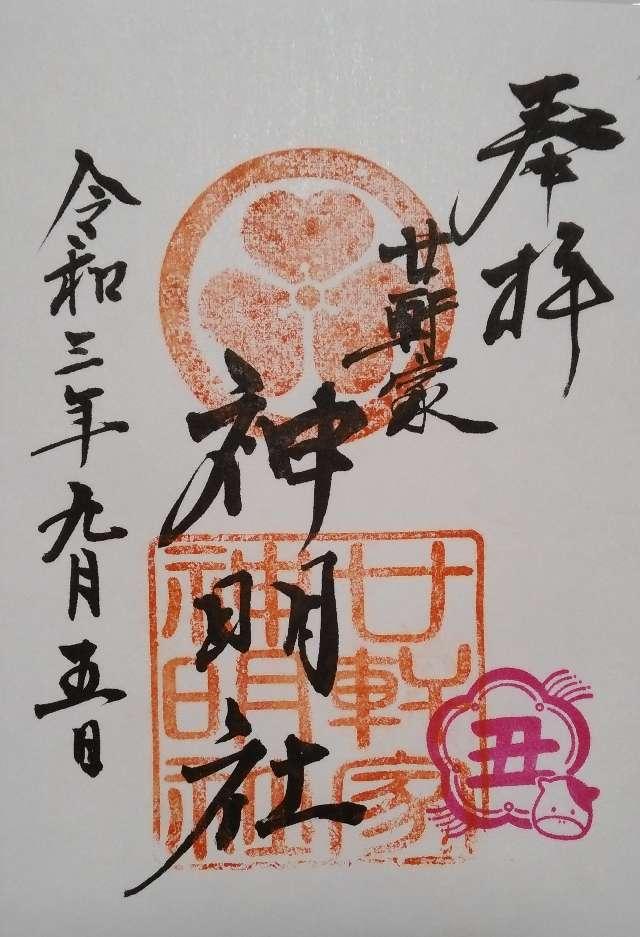 奉拝
廿軒家
神明社
令和三年九月五日
廿軒家
神明社
丑